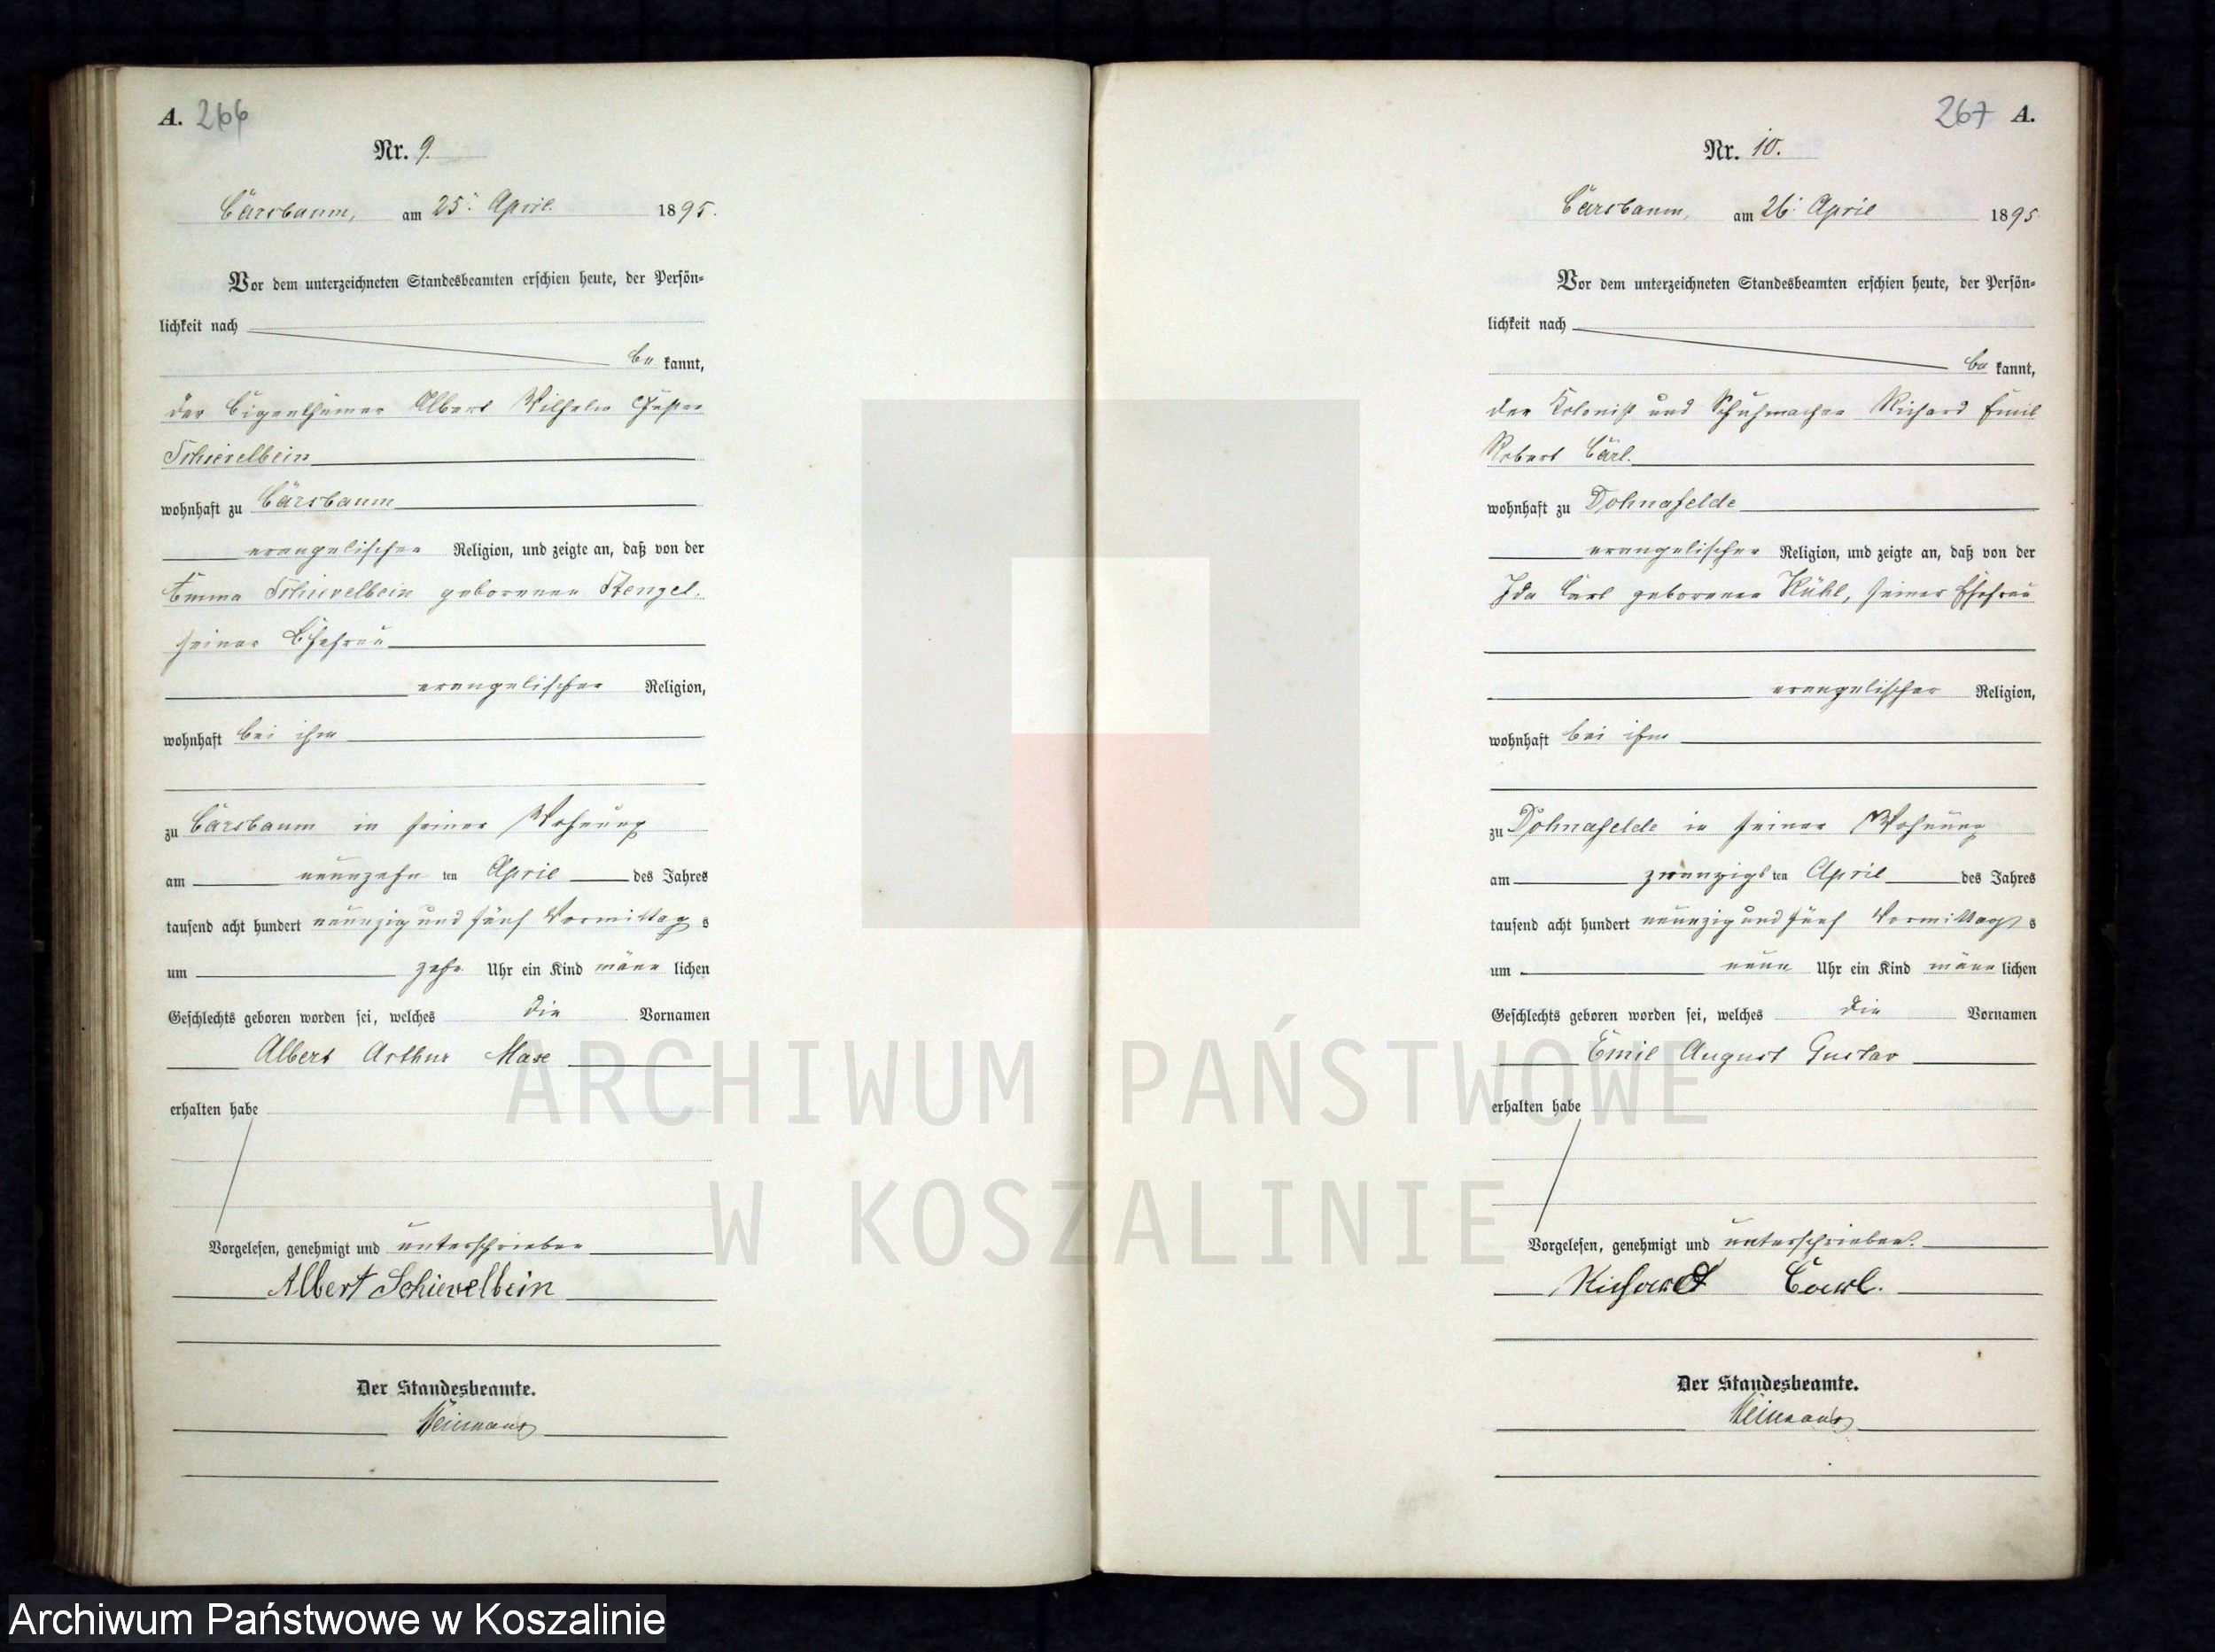 A. 266
Nr. 9.
Carsbaum, am 25. April 1895.
Vor dem unterzeichneten Standesbeamten erschien heute, der Persön-
lichkeit nach
be kannt,
der Eigenthümer Albert Wilhelm
Schievelbein
wohnhaft zu Carsbaum
evangelischer Religion, und zeigte an, daß von der
Emma Schievelbein geborenen Stengel,
seiner Ehefrau
evangelischer Religion,
wohnhaft bei ihm
zu Carsbaum in seiner Wohnung
am neunzehn ten April des Jahres
tausend acht hundert neunzig und fünf Vormittag s
um zehn Uhr ein Kind männ lichen
Geschlechts geboren worden sei, welches die Vornamen
Albert Arthur Max
erhalten habe
Vorgelesen, genehmigt und unterschrieben
Albert Schievelbein
Der Standesbeamte.
267 A.
Nr. 10.
Carsbaum, am 26. April 1895
Vor dem unterzeichneten Standesbeamten erschien heute, der Persön-
lichkeit nach
be kannt,
der Kolonist und Schuhmacher Richard Emil
Robert Carl.
wohnhaft zu Dohnafelde
evangelischer Religion, und zeigte an, daß von der
Ida Carl geborenen Kühl, seiner Ehefrau
evangelischer Religion,
wohnhaft bei ihm
zu Dohnafelde in seiner Wohnung
am zwanzigs ten April des Jahres
tausend acht hundert neunzig und fünf Vormittag s
um neun Uhr ein Kind männ lichen
Geschlechts geboren worden sei, welches die Vornamen
Emil August Gustav
erhalten habe
Vorgelesen, genehmigt und unterschrieben.
Richard Carl.
Der Standesbeamte.
ARCHIWUM PAŃSTWOWE
W KOSZALINIE
Archiwum Państwowe w Koszalinie